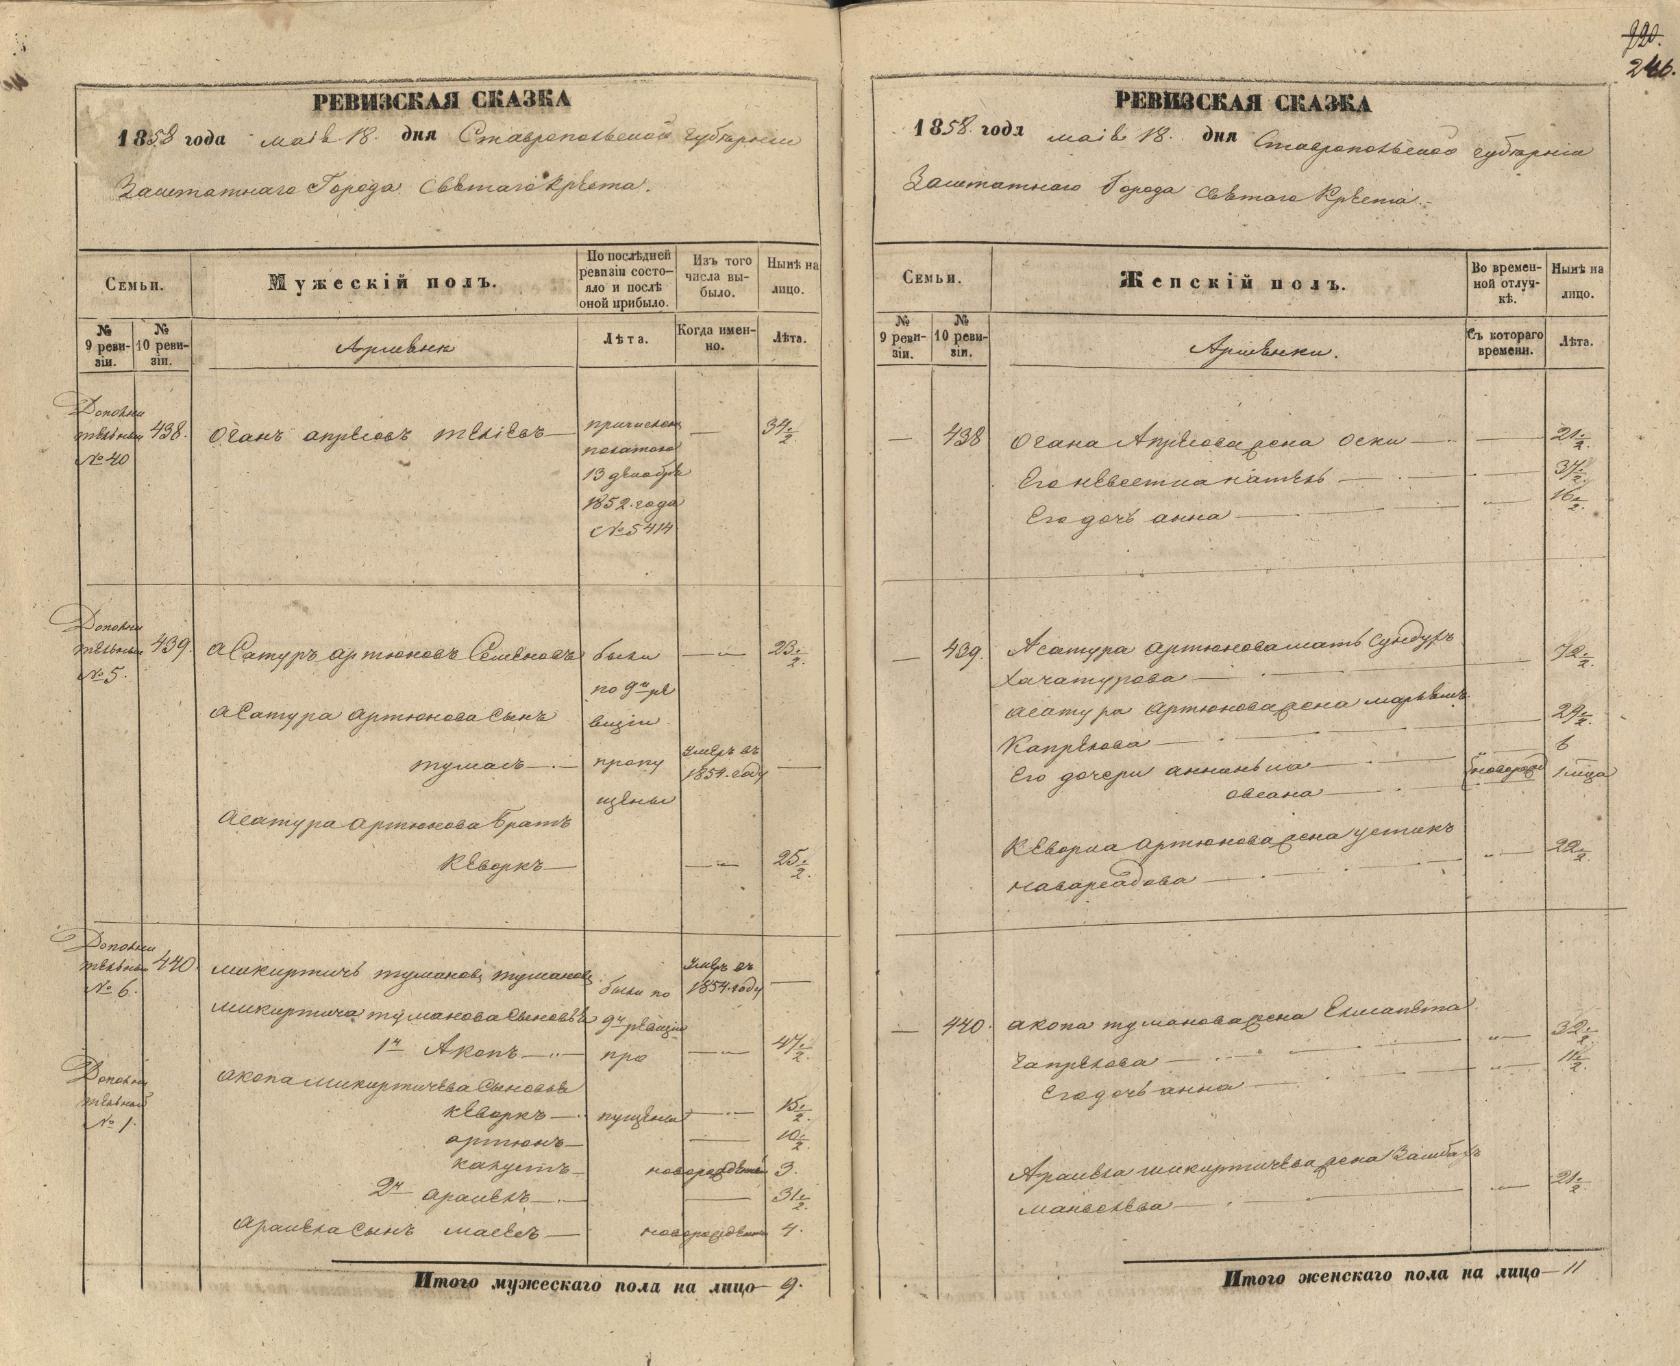 220.
246.
РЕВИЗСКАЯ СКАЗКА
1858 года маія 18. дня Ставропольской губерніи
Заштатнаго Города Святаго Креста.
Семьи.
Мужескій полъ.
По послѣдней ревизіи состояло и послѣ оной прибыло.
Изъ того числа выбыло.
Нынѣ на лицо.
№ 9 ревизіи.
№ 10 ревизіи.
Армянѣ
Лѣта.
Когда именно.
Лѣта.
Дополнительный №40
438.
Оганъ апресовъ
34 1/2
причислен
палатою
13 декабря
1852. года
№5414
Дополнительный №5.
439.
Асатуръ артюновъ Семеновъ
были
23 1/2.
по 9й ре
Асатура артюнова сынъ
визіи
тумасъ
пропу
умеръ въ 1854. году
щены
Асатура артюнова братъ
Кеворкъ
25 1/2.
Дополнительный №6.
440.
микиртичь тумановъ тумановъ
умеръ въ 1854. году
были по
микиртича туманова сыновья
9й ревизіи
1й Акопъ
про
47 1/2.
Дополнительный №1.
акопа микиртичева сыновья
кеворкъ
пущены
15 1/2.
артюнъ
10 1/2
капустъ
новорожденный
3.
2й арапелъ
31 1/2.
арапела сынъ мосесъ
новорожденный
4.
Итого мужескаго пола на лицо 9.
РЕВИЗСКАЯ СКАЗКА
1858. года маія 18. дня Ставропольской губерніи
Заштатнаго Города Святаго Креста.
Семьи.
Женскій полъ.
Во временной отлучкѣ.
Нынѣ на лицо.
№ 9 ревизіи.
№ 10 ревизіи.
Армянки.
Съ котораго времени.
Лѣта.
438
Огана Апресова жена оски
21 1/2.
Его невестка
37 1/2.
Его дочь анна
16 1/2.
439.
Асатура артюнова мать Сундукъ
72 1/2.
Хачатурова
асатура артюнова жена марьямъ
29 1/2.
Капрелова
6
Его дочери
новорож
1 мца
овсана
Кеворка артюнова жена устикъ
22 1/2.
навасардова
440.
акопа туманова жена Елисапета
32 1/2.
Гапрелова
11 1/2.
Его дочь анна
Арапела микиртичева жена
21 1/2.
Итого женскаго пола на лицо 11